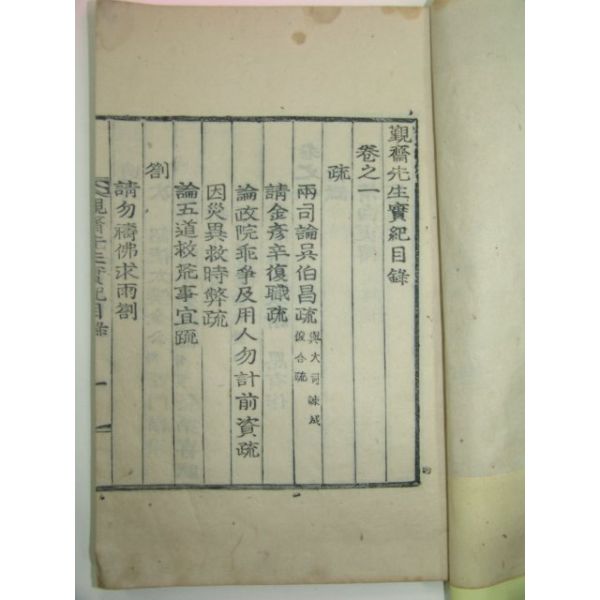 觀齋先生實紀目錄
卷之一
疏
兩司論吳伯昌疏 與大司諫成俊合疏
請金彥辛復職疏
論政院乖爭及用人勿計前資疏
因災異救時弊疏
論五道救荒事宜疏
劄
請勿禱佛求雨劄
觀齋先生實紀目錄 一